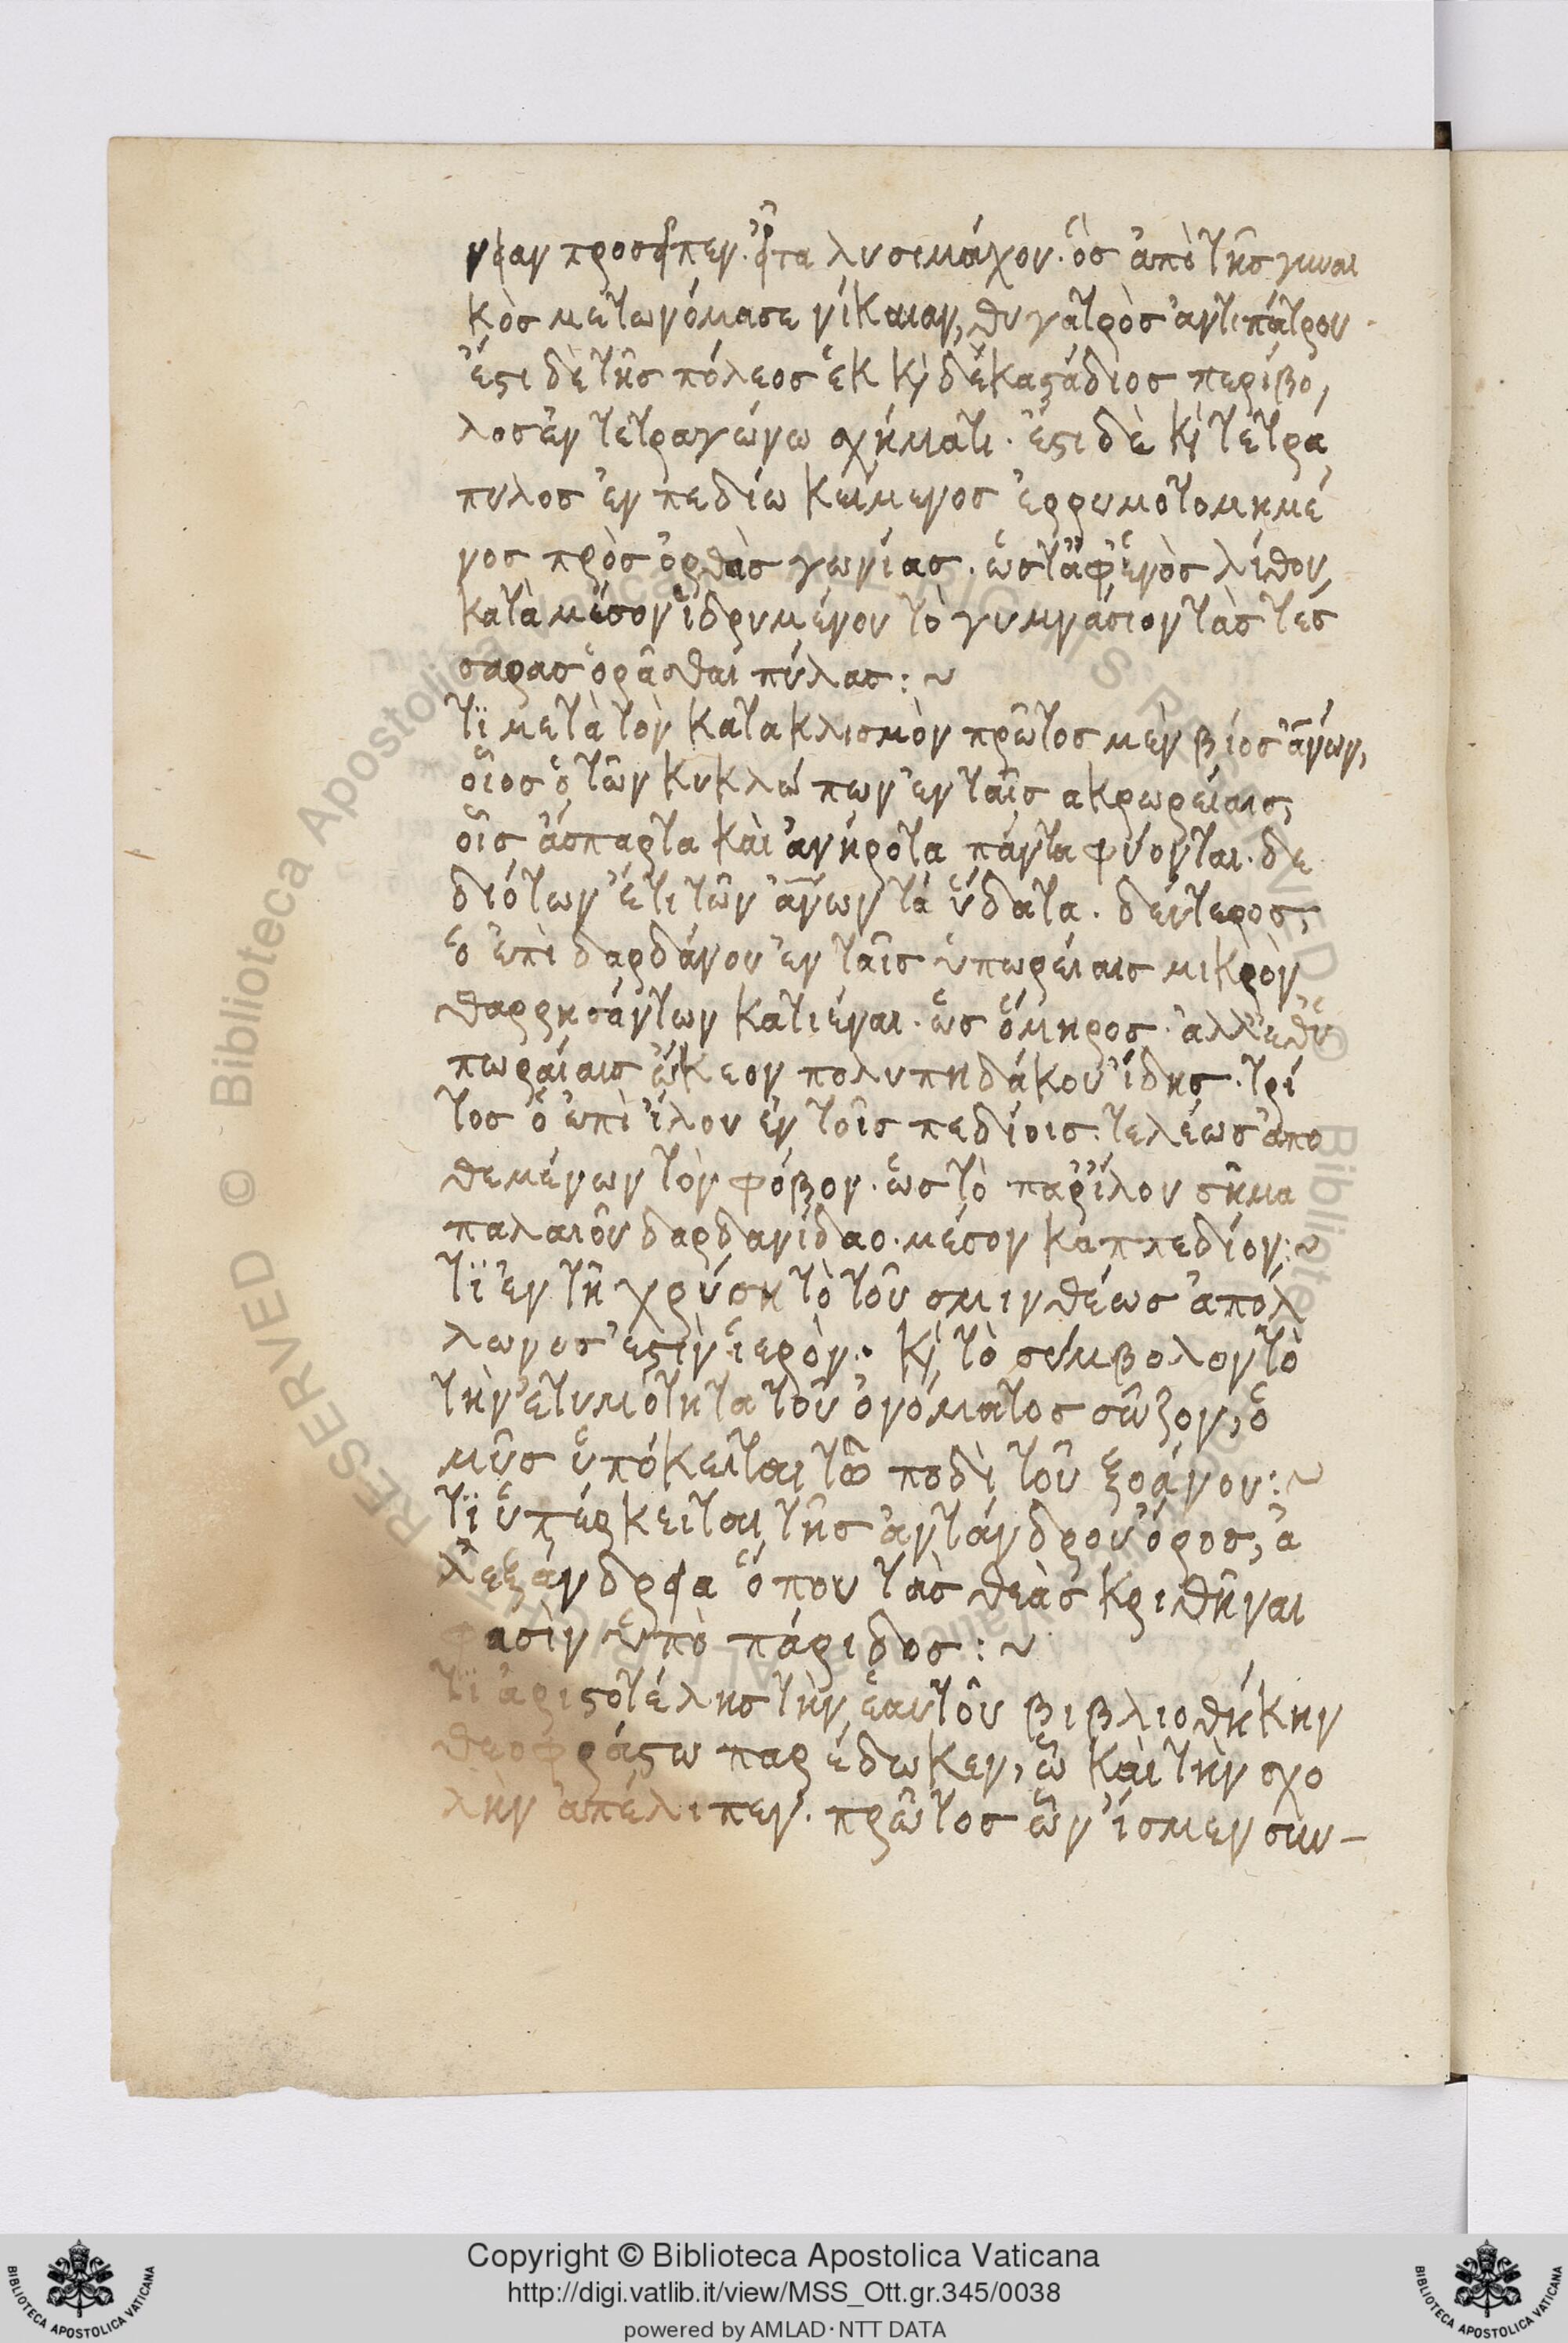 νείαν προσεῖπεν. εἶτα λυσιμάχου. ὃς ἀπὸ τῆς γυναι
κὸς μετωνόμασε νίκαιαν, θυγατρὸς ἀντιπάτρου.
ἔστι δὲ τῆς πόλεος ἑκκαιδεκαστάδιος περίβο,
λος ἐν τετραγώνω σχήματι. ἔστι δὲ κὶ τετρά
πυλος ἐν πεδίω κείμενος ἐρρυμοτομημέ
νος πρὸς ὀρθὰς γωνίας. ὥστ' ἀφ' ἑνὸς λίθου,
κατὰ μέσον ἱδρυμένου τὸ γυμνάσιον τὰς τέσ
σαρας ὁρᾶσθαι πύλας: ~
τϊ μετὰ τὸν κατακλισμὸν πρῶτος μὲν βίος ἀνων,
οἷος ὁ τῶν κυκλώπων ἐν ταῖς ακρωρείαις,
οἷς ἄσπαρτα καὶ ἀνήροτα πάντα φύονται. δε
διότων ἔτι τῶν ἀνων τὰ ὕδατα. δεύτερος,
ὁ ἐπὶ δαρδάνου ἐν ταῖς ὑπωρείαις μικρὸν
θαρρησάντων κατιέναι. ὡς ὅμηρος. ἀλλ' ἔθ' ὑ
πωραίαις ὤκεον πολυπηδάκου ἴδης. τρί
τος ὁ ἐπὶ ἴλου ἐν τοῖς πεδίοις. τελέως ἀπο
θεμένων τὸν φόβον. ὡς τὸ παρ' ἴλου σῆμα
παλαιοῦ δαρδανίδαο. μέσον καππεδίον: ~
τϊ ἐν τῆ χρύση τὸ τοῦ σμινθέως ἀπόλ
λωνος ἐστιν ἱερὸν. κὶ τὸ σύμβολον τὸ
τὴν ἐτυμότητα τοῦ ὀνόματος σῶζον, ὁ
μῦς ὑπόκειται τῶ ποδὶ τοῦ ξοάνου: ~
τϊ ὑπέρκειται τῆς ἀντάνδρου ὄρος, ἀ
λεξάνδρεια ὅπου τὰς θεὰς κριθῆναι
φασὶν ὑπὸ πάριδος: ~
τϊ ἀριστοτέλης τὴν ἑαυτοῦ βιβλιοθήκην
θεοφράστω παρέδωκεν, ᾧ καὶ τὴν σχο
λὴν ἀπέλιπεν. πρῶτος ὧν ἴσμεν συν-
Copyright © Biblioteca Apostolica Vaticana
http://digi.vatlib.it/view/MSS_Ott.gr.345/0038
powered by AMLAD·NTT DATA